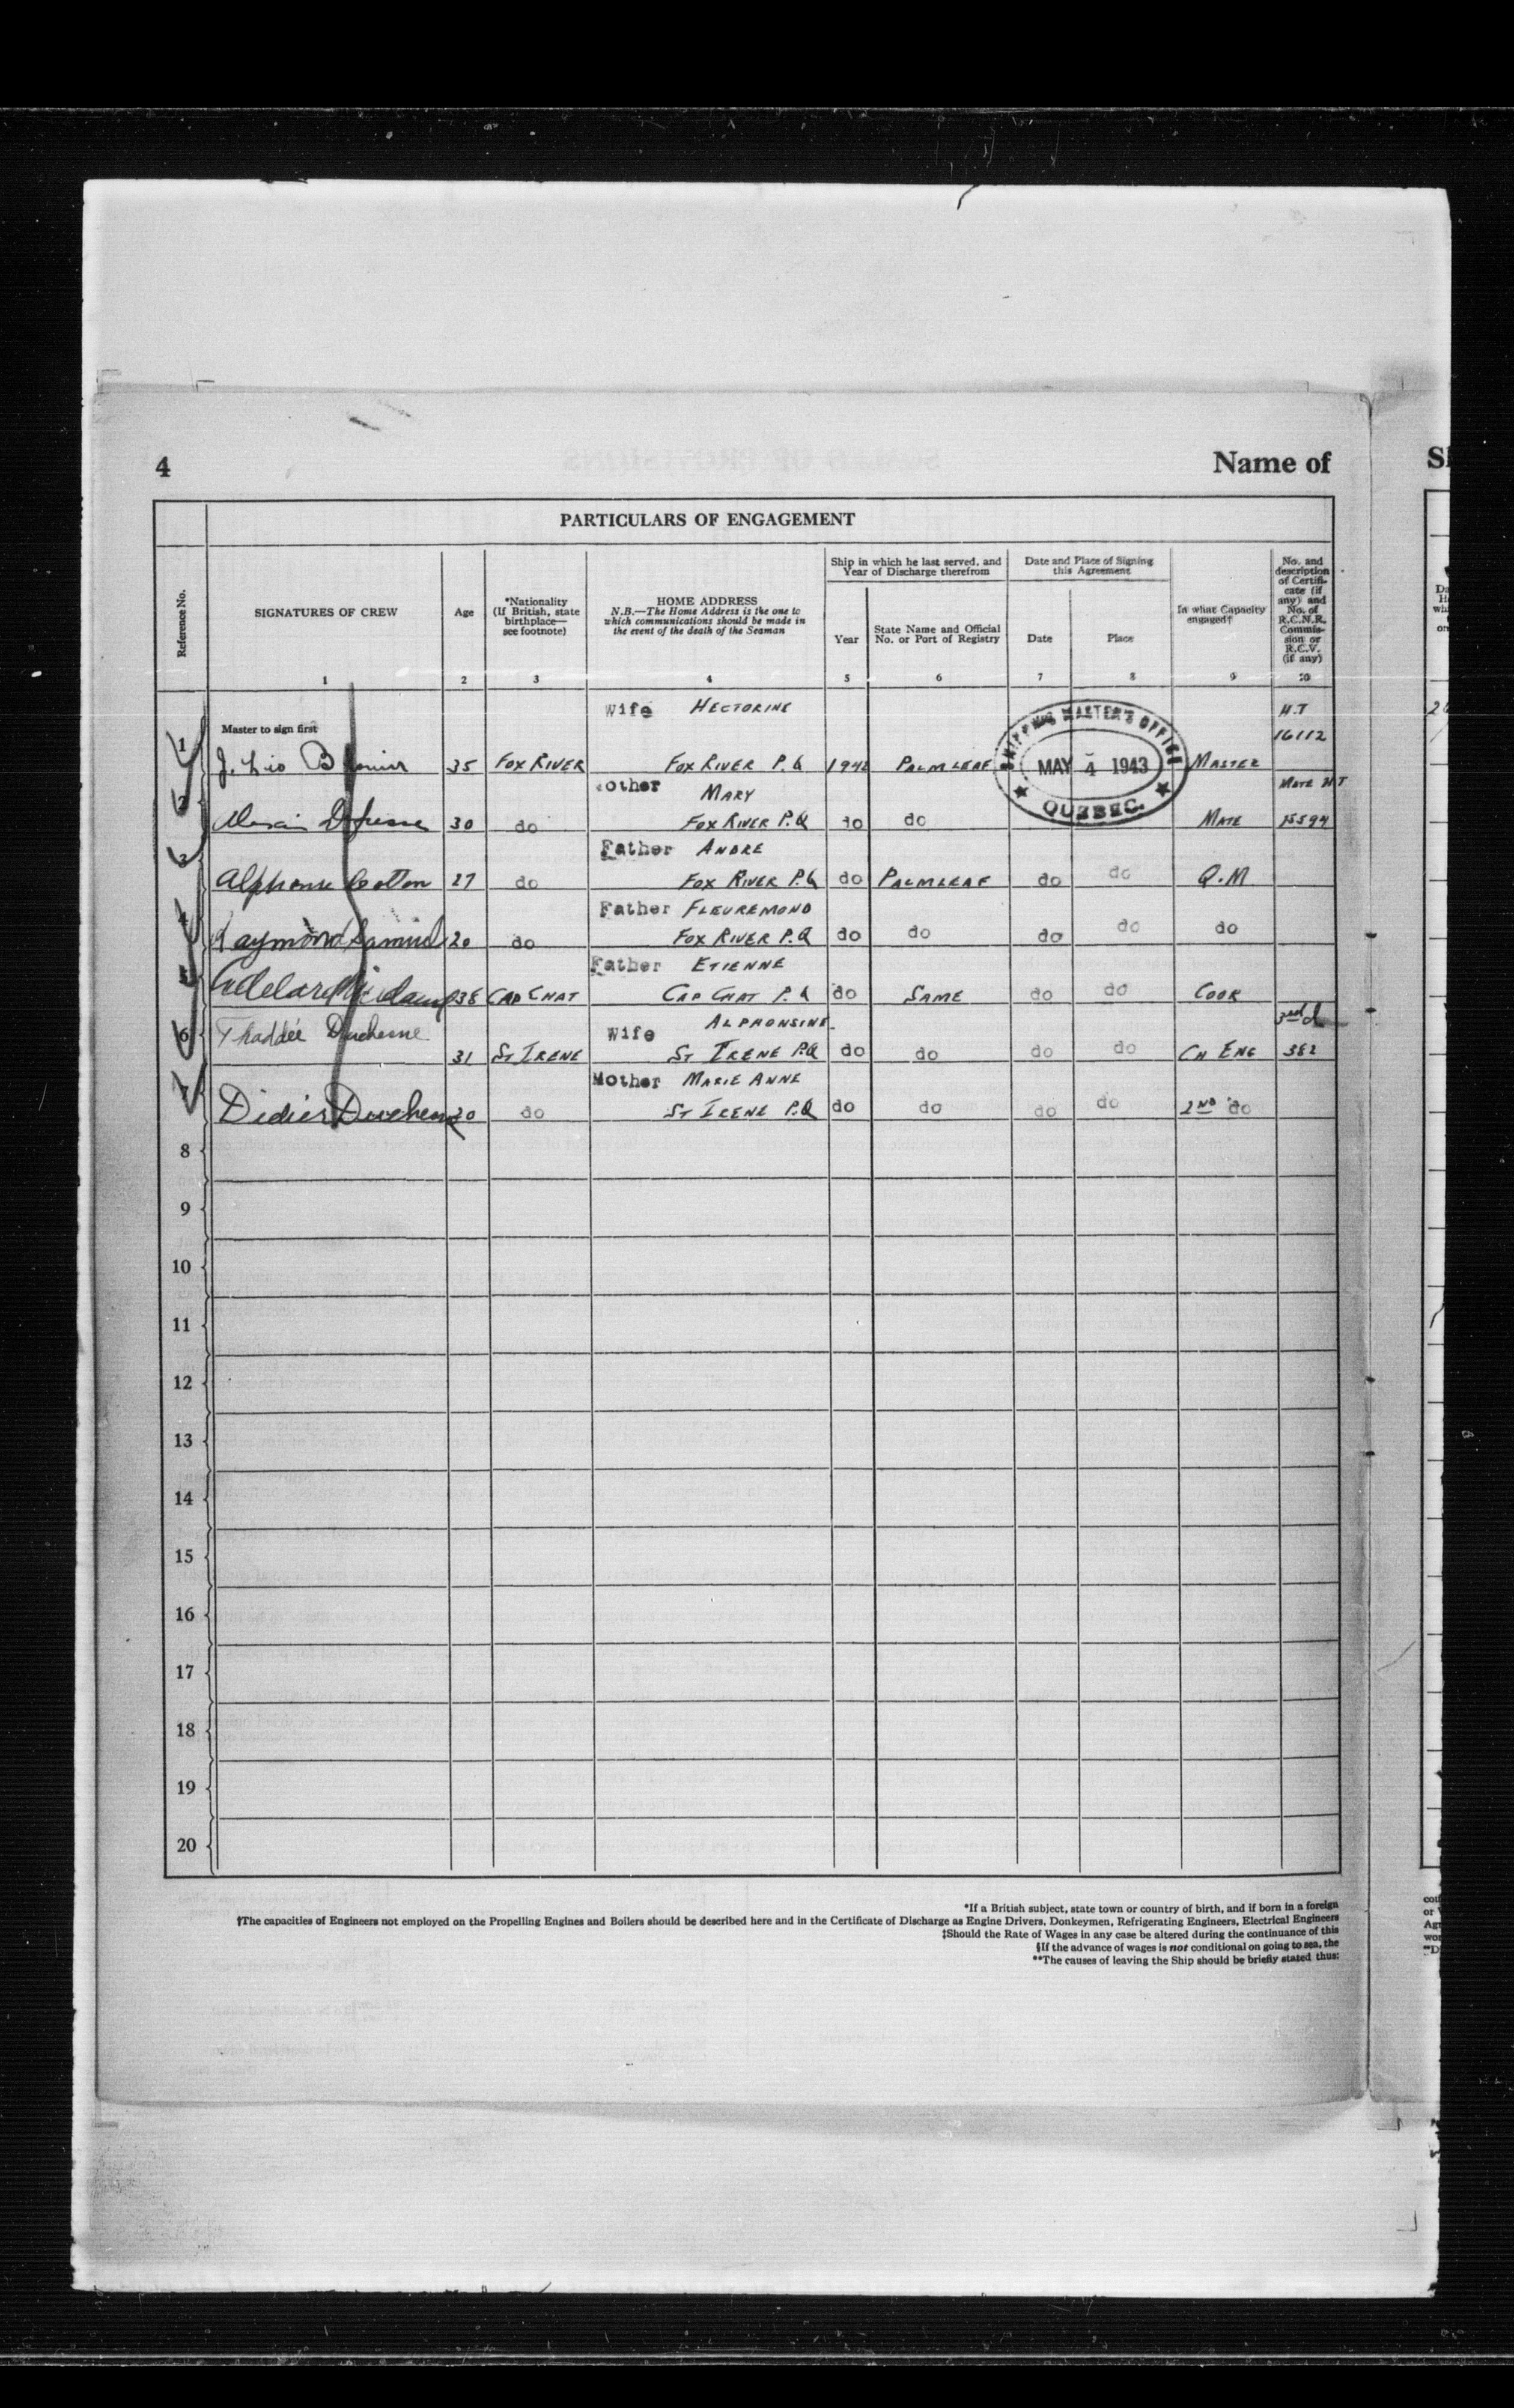 4
Name of
PARTICULARS OF ENGAGEMENT
Reference No.
SIGNATURES OF CREW
1
Age
2
*Nationality
(If British, state
birthplace—
see footnote)
3
HOME ADDRESS
N.B.—The Home Address is the one to
which communications should be made in
the event of the death of the Seaman
4
Ship in which he last served, and
Year of Discharge therefrom
Year
5
State Name and Official
No. or Port of Registry
6
Date and Place of Signing
this Agreement
Date
7
Place
8
In what Capacity
engaged†
9
No. and
description
of Certifi-
cate (if
any) and
No. of
R.C.N.R.
Commis-
sion or
R.C.V.
(if any)
10
Master to sign first
Wife HECTORINE H.T
16112
1 J. 35 FOX RIVER FOX RIVER P.Q PALMLEAF MASTER
SHIPPING MASTER'S OFFICE
MAY 4 1943
QUEBEC.
other MARY MATE H T
2 30 do FOX RIVER P.Q do do MATE 15594
Father ANDRE
3 Alphonse Cotton 27 do FOX RIVER P.Q do PALMLEAF do do Q.M
Father FLEUREMOND
4 Raymond 20 do FOX RIVER P.Q do do do do do
Father ETIENNE
5 Adelard 38 CAP CHAT CAP CHAT P.Q do SAME do do COOK
Wife ALPHONSINE 3rd cl
6 Thaddée Duchesne 31 ST IRENE ST IRENE P.Q do do do do CH ENG 382
Mother MARIE ANNE
7 Didier Duchesne 20 do ST IRENE P.Q do do do do 2ND do
8
9
10
11
12
13
14
15
16
17
18
19
20
*If a British subject, state town or country of birth, and if born in a foreign
†The capacities of Engineers not employed on the Propelling Engines and Boilers should be described here and in the Certificate of Discharge as Engine Drivers, Donkeymen, Refrigerating Engineers, Electrical Engineers
‡Should the Rate of Wages in any case be altered during the continuance of this
§If the advance of wages is not conditional on going to sea, the
**The causes of leaving the Ship should be briefly stated thus: